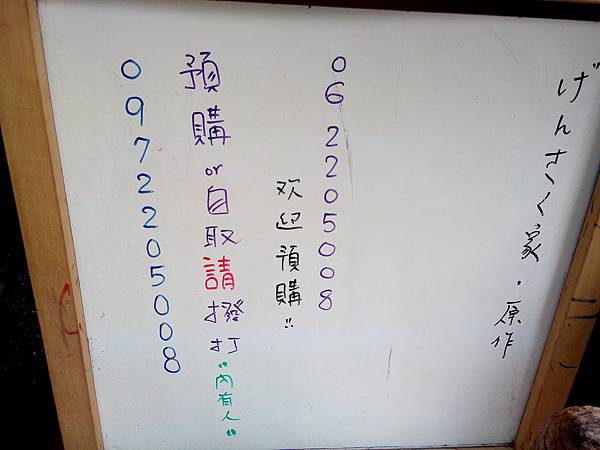 げんさく家・原作
06 2205008
欢迎預購!!
預購or自取請撥打"內有人"
0972205008